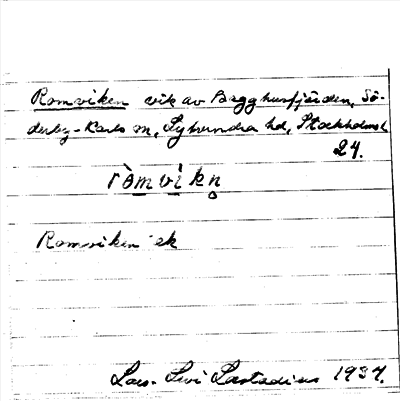 Romviken vik av Bagghusfjärden, Sö-
derby-Karls sn, Lyhundra hd, Stockholms l.
24.
ròmvìkn̥
Romviken ek
Lars-Levi Læstadius 1934.